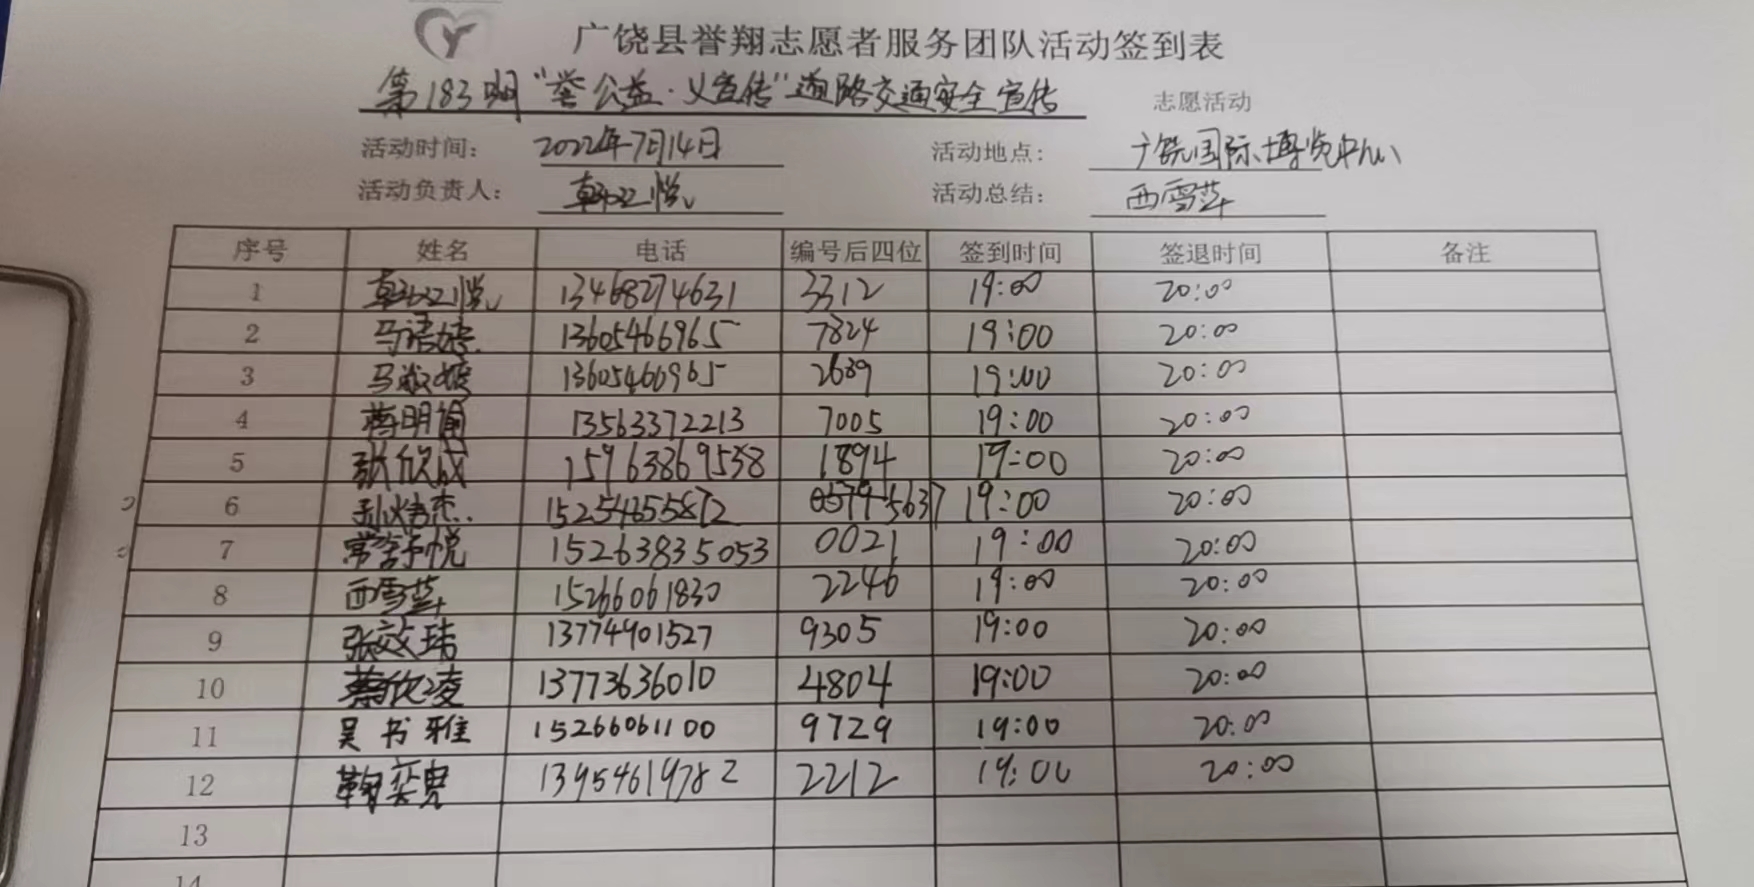 广饶县誉翔志愿者服务团队活动签到表
第183期“誉公益·义宣传”道路交通安全宣传 志愿活动
活动时间: 2022年7月14日 活动地点: 广饶国际博览中心
活动负责人: 活动总结: 西雪莲
序号 姓名 电话 编号后四位 签到时间 签退时间 备注
1 13468274631 3312 19:00 20:00
2 马语婷 13605466965 7824 19:00 20:00
3 13605466965 2689 19:00 20:00
4 蒋明 13563372213 7005 19:00 20:00
5 张欣成 15963869558 1894 19:00 20:00
6 15254655872 5637 19:00 20:00
7 常舒悦 15263835053 0021 19:00 20:00
8 西雪莲 15266061830 2246 19:00 20:00
9 张效玮 13774901527 9305 19:00 20:00
10 蔡欣凌 13773636010 4804 19:00 20:00
11 吴书雅 15266061100 9729 19:00 20:00
12 鞠奕 13954619782 2212 19:00 20:00
13
14